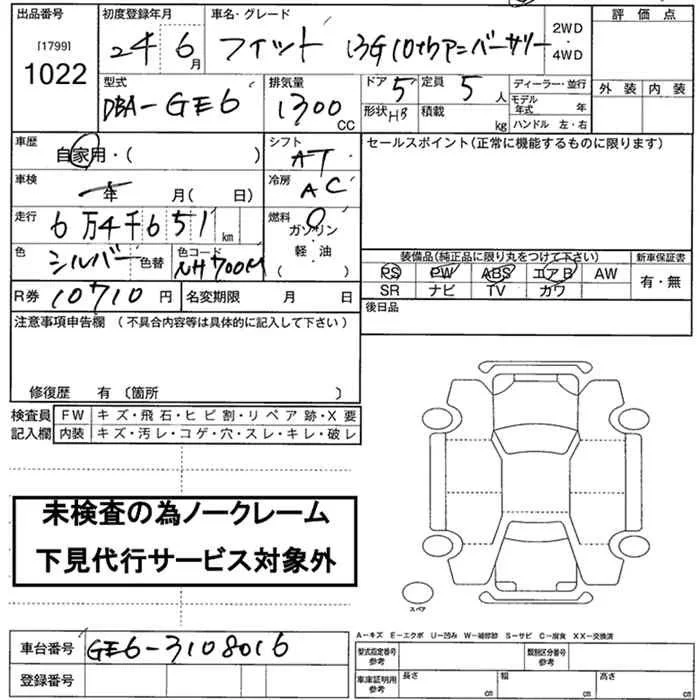 出品番号 初度登録年月 車名・グレード 評価点
[1799]
1022
24 6月 フィット 13G 10thアニバーサリー 2WD・4WD
外装 内装
型式 排気量 ドア 5 定員 5人 ディーラー・並行
DBA-GE6 1300 CC 形状 HB 積載 kg モデル年式 年
ハンドル 左・右
車歴 自家用・( ) シフト AT セールスポイント(正常に機能するものに限ります)
車検 年 月( 日) 冷房 AC
走行 6万4千651 km 燃料 ガソリン・軽油 ( )
色 シルバー 色替 色コード NH700M
装備品(純正品に限り丸をつけて下さい) 新車保証書
PS PW ABS エアB AW 有・無
SR ナビ TV カワ
R券 10710円 名変期限 月 日 後日品
注意事項申告欄 (不具合内容等は具体的に記入して下さい)
修復歴 有 〔箇所 〕
検査員 FW キズ・飛石・ヒビ割・リペア跡・X要
記入欄 内装 キズ・汚レ・コゲ・穴・スレ・キレ・破レ
未検査の為ノークレーム
下見代行サービス対象外
スペア
A-キズ E-エクボ U-凹み W-補修跡 S-サビ C-腐食 XX-交換済
車台番号 GE6-3108016 型式指定番号 参考 類別区分番号 参考
登録番号 車庫証明用 参考 長さ cm 幅 cm 高さ cm